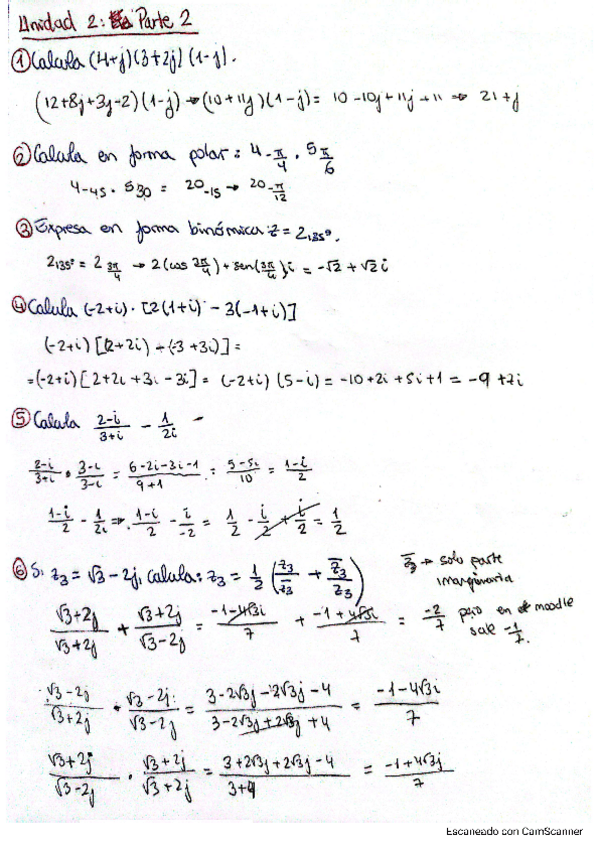 Unidad 2: Parte 2
① Calcula (4+j)(3+2j)(1-j).
(12+8j+3j-2)(1-j) → (10+11j)(1-j) = 10-10j+11j+11 → 21+j
② Calcula en forma polar: 4_-π/4 · 5_π/6
4_-45 · 5_30 = 20_-15 → 20_-π/12
③ Expresa en forma binómica: z = 2_135º.
2_135º = 2_3π/4 → 2(cos 3π/4) + sen(3π/4)i = -√2 + √2 i
④ Calcula (-2+i) · [2(1+i) - 3(-1+i)]
(-2+i)[(2+2i) - (-3+3i)] =
= (-2+i)[2+2i+3i-3i] = (-2+i)(5-i) = -10+2i+5i+1 = -9+7i
⑤ Calcula (2-i)/(3+i) - 1/2i -
(2-i)/(3+i) · (3-i)/(3-i) = (6-2i-3i-1)/(9+1) = (5-5i)/10 = (1-i)/2
(1-i)/2 - 1/2i → (1-i)/2 - i/-2 = 1/2 - i/2 + i/2 = 1/2
⑥ Si z₃ = √3 - 2j, calcula: z₃ = 1/2 (z₃/z̄₃ + z̄₃/z₃)
z̄₃ → solo parte
imarginaria
(√3+2j)/(√3+2j) + (√3+2j)/(√3-2j) = (-1-4√3i)/7 + (-1+4√3i)/7 = -2/7 pero en el moodle
sale -1/7.
(√3-2j)/(√3+2j) · (√3-2j)/(√3-2j) = (3-2√3j-2√3j-4)/(3-2√3j+2√3j+4) = (-1-4√3i)/7
(√3+2j)/(√3-2j) · (√3+2j)/(√3+2j) = (3+2√3j+2√3j-4)/(3+4) = (-1+4√3j)/7
Escaneado con CamScanner